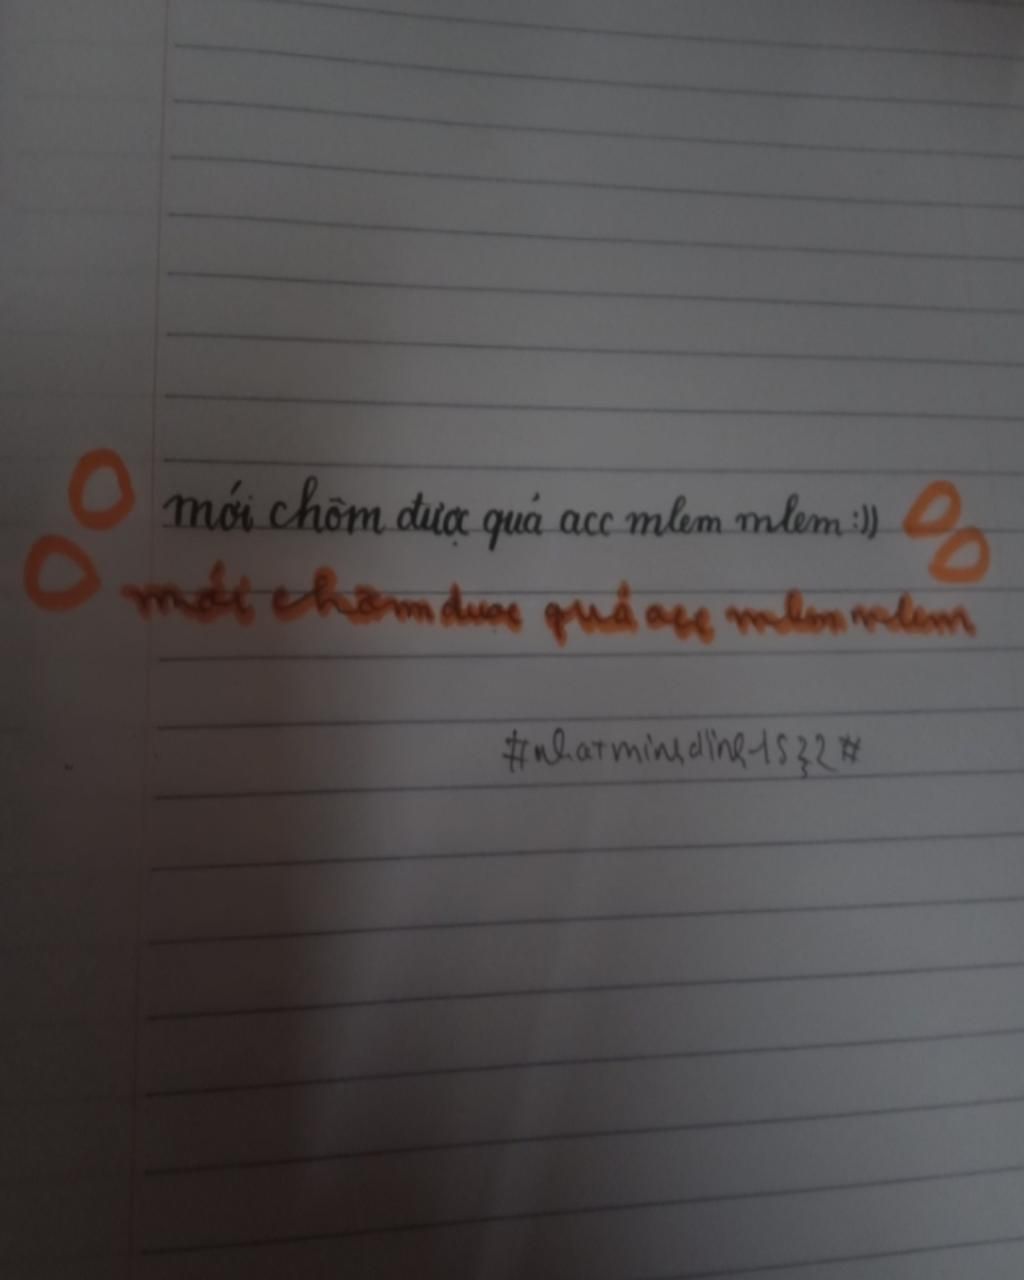 mới chôm được quá acc mlem mlem :))
mới chôm được quá acc mlem mlem